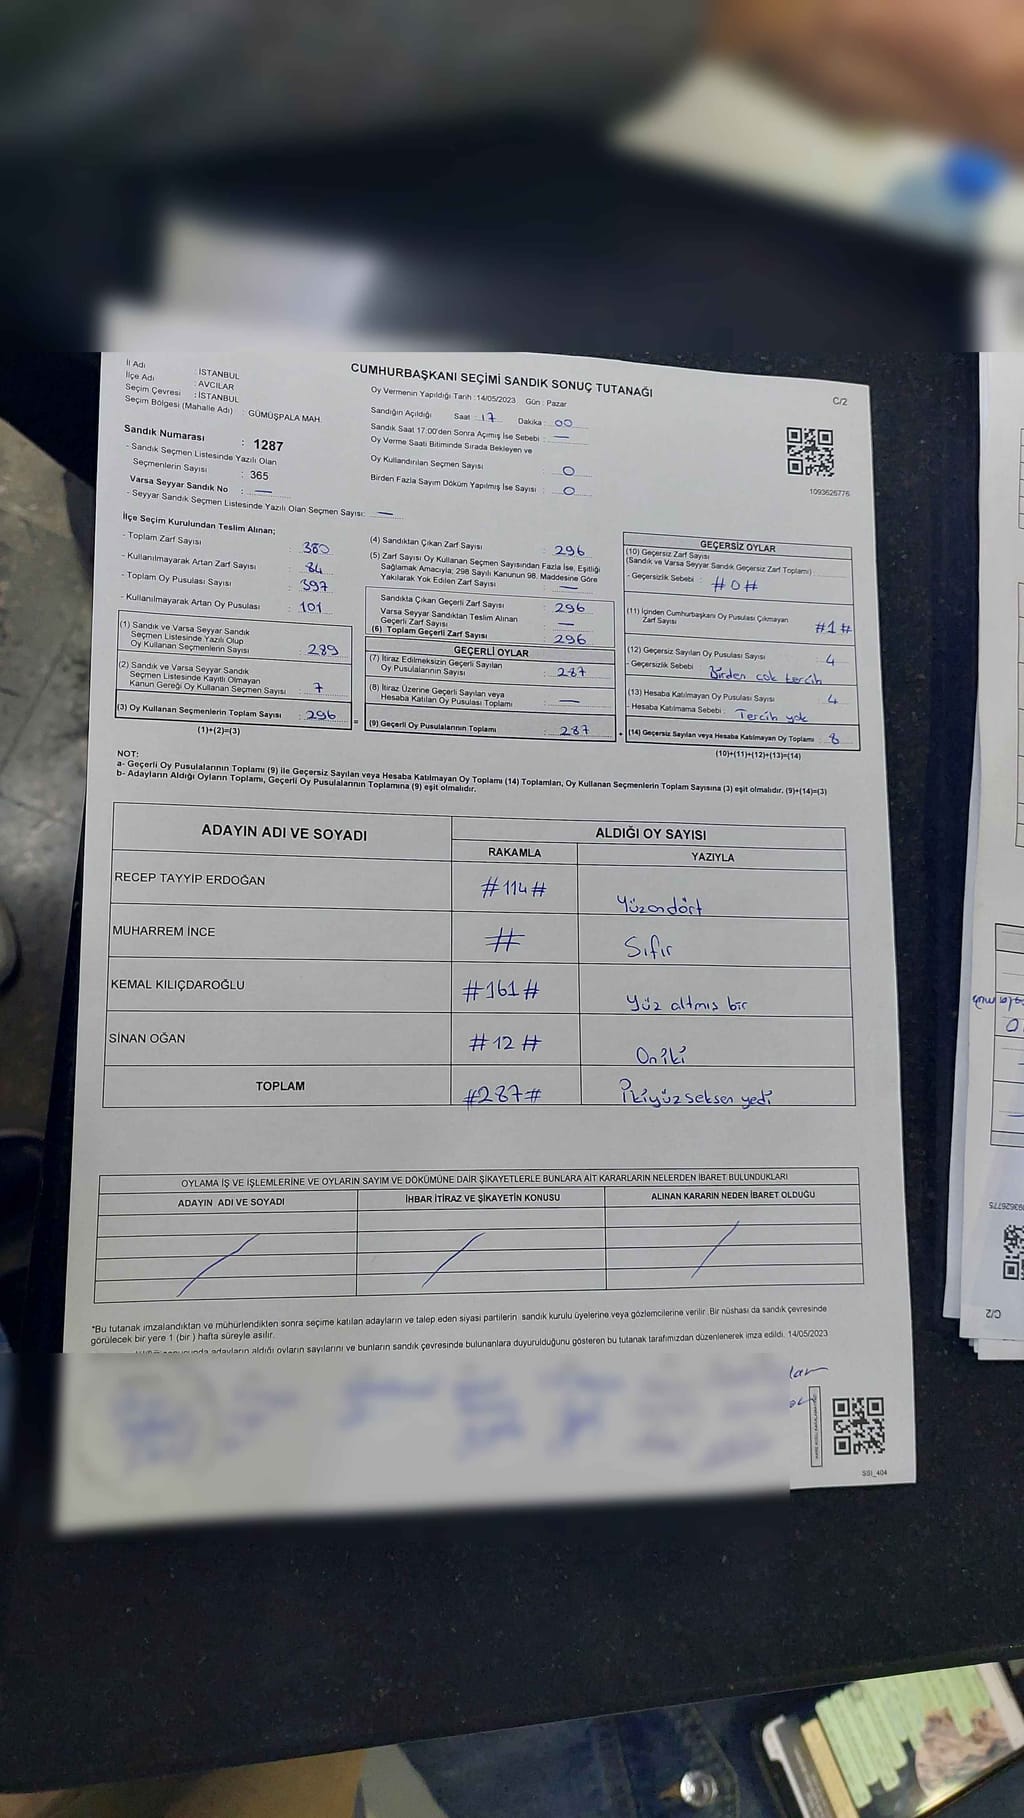 CUMHURBAŞKANI SEÇİMİ SANDIK SONUÇ TUTANAĞI
C/2
İl Adı : İSTANBUL
İlçe Adı : AVCILAR
Seçim Çevresi : İSTANBUL
Seçim Bölgesi (Mahalle Adı) : GÜMÜŞPALA MAH.
Sandık Numarası : 1287
- Sandık Seçmen Listesinde Yazılı Olan
Seçmenlerin Sayısı : 365
Varsa Seyyar Sandık No : —
- Seyyar Sandık Seçmen Listesinde Yazılı Olan Seçmen Sayısı: —
Oy Vermenin Yapıldığı Tarih :14/05/2023 Gün : Pazar
Sandığın Açıldığı Saat : 17 Dakika : 00
Sandık Saat 17:00'den Sonra Açımış İse Sebebi : —
Oy Verme Saati Bitiminde Sırada Bekleyen ve
Oy Kullandırılan Seçmen Sayısı : 0
Birden Fazla Sayım Döküm Yapılmış İse Sayısı : 0
1093626776
İlçe Seçim Kurulundan Teslim Alınan;
- Toplam Zarf Sayısı : 380
- Kullanılmayarak Artan Zarf Sayısı : 84
- Toplam Oy Pusulası Sayısı : 397
- Kullanılmayarak Artan Oy Pusulası : 101
(1) Sandık ve Varsa Seyyar Sandık
Seçmen Listesinde Yazılı Olup
Oy Kullanan Seçmenlerin Sayısı : 289
(2) Sandık ve Varsa Seyyar Sandık
Seçmen Listesinde Kayıtlı Olmayan
Kanun Gereği Oy Kullanan Seçmen Sayısı : 7
(3) Oy Kullanan Seçmenlerin Toplam Sayısı : 296
(1)+(2)=(3)
(4) Sandıktan Çıkan Zarf Sayısı : 296
(5) Zarf Sayısı Oy Kullanan Seçmen Sayısından Fazla İse, Eşitliği
Sağlamak Amacıyla; 298 Sayılı Kanunun 98. Maddesine Göre
Yakılarak Yok Edilen Zarf Sayısı : —
Sandıkta Çıkan Geçerli Zarf Sayısı : 296
Varsa Seyyar Sandıktan Teslim Alınan
Geçerli Zarf Sayısı : —
(6) Toplam Geçerli Zarf Sayısı : 296
GEÇERLİ OYLAR
(7) İtiraz Edilmeksizin Geçerli Sayılan
Oy Pusulalarının Sayısı : 287
(8) İtiraz Üzerine Geçerli Sayılan veya
Hesaba Katılan Oy Pusulası Toplamı : —
(9) Geçerli Oy Pusulalarının Toplamı : 287
GEÇERSİZ OYLAR
(10) Geçersiz Zarf Sayısı
(Sandık ve Varsa Seyyar Sandık Geçersiz Zarf Toplamı)
- Geçersizlik Sebebi : #0#
(11) İçinden Cumhurbaşkanı Oy Pusulası Çıkmayan
Zarf Sayısı : #1#
(12) Geçersiz Sayılan Oy Pusulası Sayısı : 4
- Geçersizlik Sebebi : Birden çok tercih
(13) Hesaba Katılmayan Oy Pusulası Sayısı : 4
- Hesaba Katılmama Sebebi : Tercih yok
(14) Geçersiz Sayılan veya Hesaba Katılmayan Oy Toplamı : 8
(10)+(11)+(12)+(13)=(14)
NOT:
a- Geçerli Oy Pusulalarının Toplamı (9) ile Geçersiz Sayılan veya Hesaba Katılmayan Oy Toplamı (14) Toplamları, Oy Kullanan Seçmenlerin Toplam Sayısına (3) eşit olmalıdır. (9)+(14)=(3)
b- Adayların Aldığı Oyların Toplamı, Geçerli Oy Pusulalarının Toplamına (9) eşit olmalıdır.
ADAYIN ADI VE SOYADI ALDIĞI OY SAYISI
RAKAMLA YAZIYLA
RECEP TAYYİP ERDOĞAN #114# Yüzondört
MUHARREM İNCE # Sıfır
KEMAL KILIÇDAROĞLU #161# Yüz altmış bir
SİNAN OĞAN #12# Oniki
TOPLAM #287# İkiyüzseksen yedi
OYLAMA İŞ VE İŞLEMLERİNE VE OYLARIN SAYIM VE DÖKÜMÜNE DAİR ŞİKAYETLERLE BUNLARA AİT KARARLARIN NELERDEN İBARET BULUNDUKLARI
ADAYIN ADI VE SOYADI İHBAR İTİRAZ VE ŞİKAYETİN KONUSU ALINAN KARARIN NEDEN İBARET OLDUĞU
*Bu tutanak imzalandıktan ve mühürlendikten sonra seçime katılan adayların ve talep eden siyasi partilerin sandık kurulu üyelerine veya gözlemcilerine verilir. Bir nüshası da sandık çevresinde
görülecek bir yere 1 (bir ) hafta süreyle asılır.
adayların aldığı oyların sayılarını ve bunların sandık çevresinde bulunanlara duyurulduğunu gösteren bu tutanak tarafımızdan düzenlenerek imza edildi. 14/05/2023
SSI_404
C/2